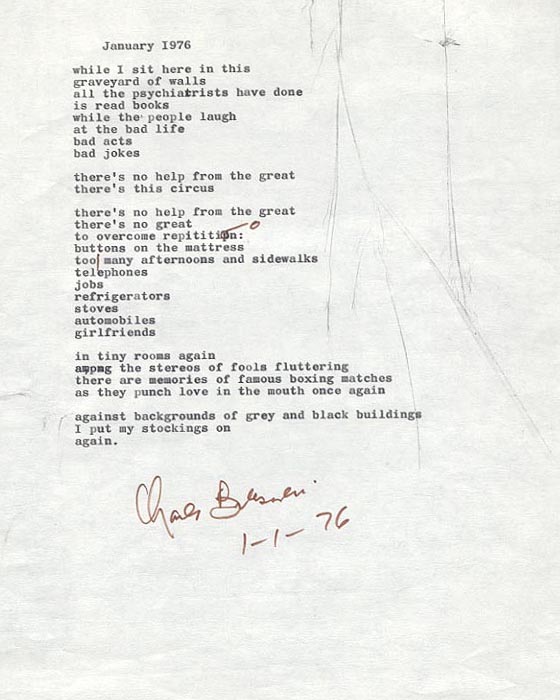 January 1976
while I sit here in this
graveyard of walls
all the psychiatrists have done
is read books
while the people laugh
at the bad life
bad acts
bad jokes
there's no help from the great
there's this circus
there's no help from the great
there's no great
to overcome repitition:
buttons on the mattress
too many afternoons and sidewalks
telephones
jobs
refrigerators
stoves
automobiles
girlfriends
in tiny rooms again
among the stereos of fools fluttering
there are memories of famous boxing matches
as they punch love in the mouth once again
against backgrounds of grey and black buildings
I put my stockings on
again.
Charles Bukowski
1-1-76